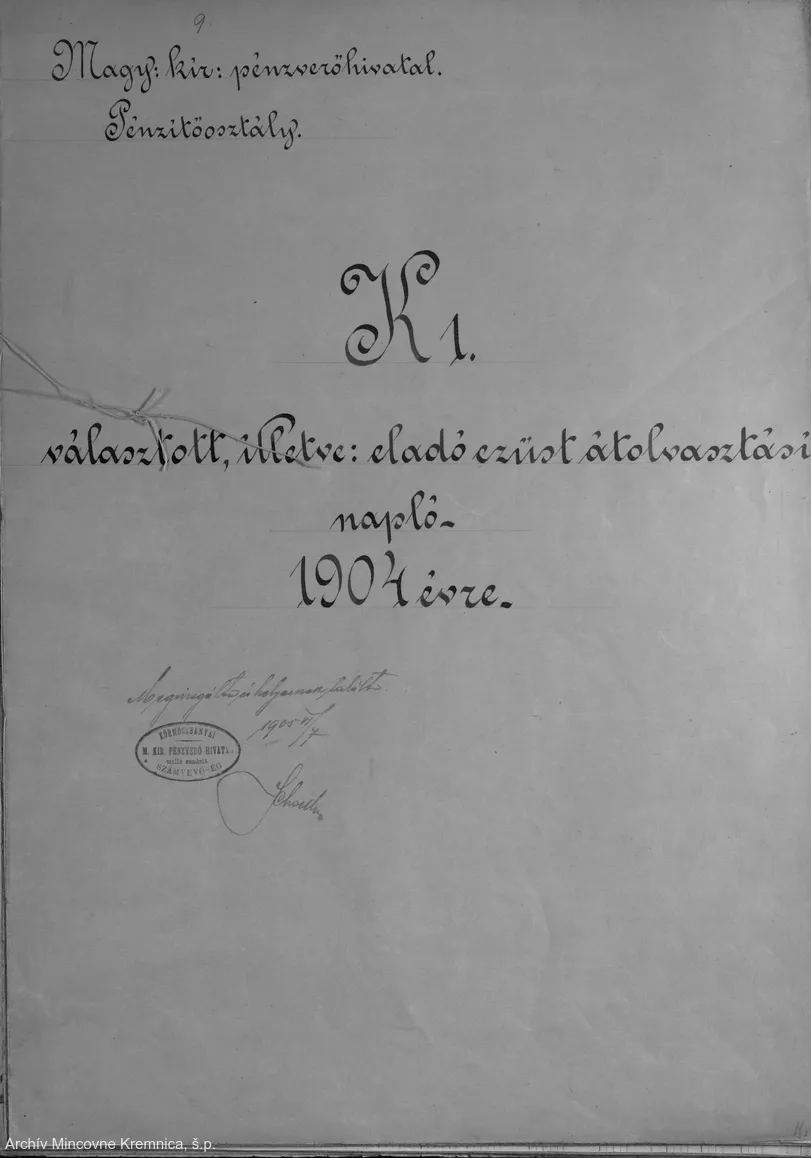 9
Magy: kir: pénzverőhivatal.
Pénzítőosztály.
K 1.
választott, illetve: eladó ezüst átolvasztási
napló
1904 évre.
Megvizsgálta és helyesnek találta
1905 VI/7
KÖRMÖCBÁNYAI
M. KIR. PÉNZVERŐ HIVATAL
mellé rendelt
SZÁMVEVŐSÉG
Archív Mincovne Kremnica, š.p.